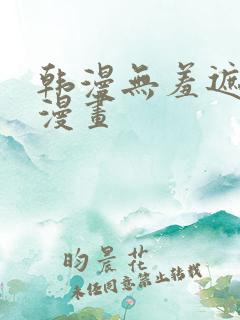 韩漫無羞遮
漫畫
昀晨花
未经同意禁止转载